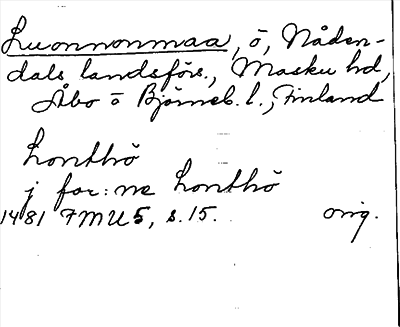 Luonnonmaa, ö, Nåden-
dals landsförs., Masku hd,
Åbo o Björneb. l., Finland
Lonthö
j for: ne Lonthö
1481 FMU 5, s. 15. orig.